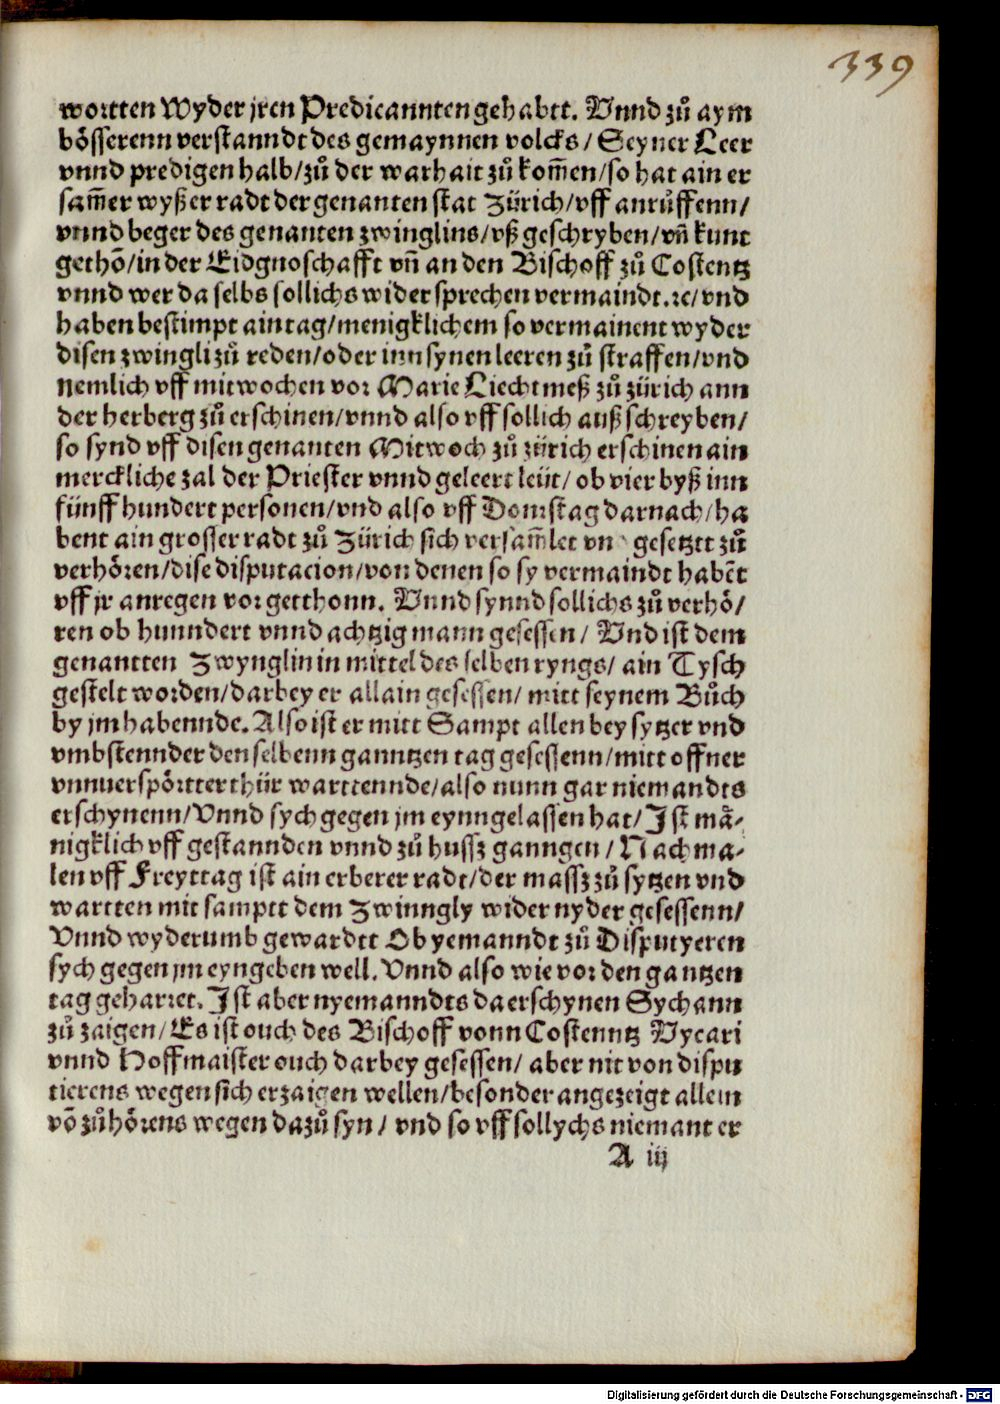 339
wortten Wyder jren Predicannten gehabtt. Vnnd zů aym
bösserenn verstanndt des gemaynnen volcks / Seyner Leer
vnnd predigen halb / zů der warhait zů kom̅en / so hat ain er
sam̅er wyßer radt der genanten stat Zürich / vff anrůffenn /
vnnd beger des genanten zwinglins / vß geschryben / vn̅ kunt
gethō / in der Eidgnoschafft vn̅ an den Bischoff zů Costentz
vnnd wer da selbs sollichs wider sprechen vermaindt. ꝛc / vnd
haben bestimpt ain tag / menigklichem so vermainent wyder
disen zwingli zů reden / oder inn synen leeren zů straffen / vnd
nemlich vff mitwochen vor Marie Liechtmeß zů zürich ann
der herberg zů erschinen / vnnd also vff sollich auß schreyben /
so synd vff disen genanten Mitwoch zů zürich erschinen ain
merckliche zal der Priester vnnd geleert leüt / ob vier byß inn
fünff hundert personen / vnd also vff Dornstag darnach / ha
bent ain grosser radt zů Zürich sich versam̅let vn gesetztt zů
verhören / dise disputacion / von denen so sy vermaindt habēt
vff jr anregen vor getthonn. Vnnd synnd sollichs zů verhö /
ren ob hunndert vnnd achtzig mann gesessen / Vnd ist dem
genantten Zwynglin in mittel des selben ryngs / ain Tysch
gestelt worden / darbey er allain gesessen / mitt seynem Bůch
by jm habennde. Also ist er mitt Sampt allen bey sytzer vnd
vmbstennder den selbenn ganntzen tag gesessenn / mitt offner
vnnuerspörtter thür warttennde / also nunn gar niemandts
erschynenn / Vnnd sych gegen jm eynngelassen hat / Ist mā-
nigklich vff gestannden vnnd zů hussz ganngen / Nach ma-
len vff Freyttag ist ain erberer radt / der massz zů sytzen vnd
wartten mit samptt dem Zwinngly wider nyder gesessenn /
Vnnd wyderumb gewardtt Ob yemanndt zů Disputyeren
sych gegen jm eyngeben well. Vnnd also wie vor den gantzen
tag geharret. Ist aber nyemanndts da erschynen Sych ann
zů zaigen / Es ist ouch des Bischoff vonn Costenntz Vycari
vnnd Hoffmaister ouch darbey gesessen / aber nit von dispu
tierens wegen sich erzaigen wellen / besonder angezeigt allein
vō zůhörens wegen dazů syn / vnd so vff sollychs niemant er
A iij
Digitalisierung gefördert durch die Deutsche Forschungsgemeinschaft - DFG